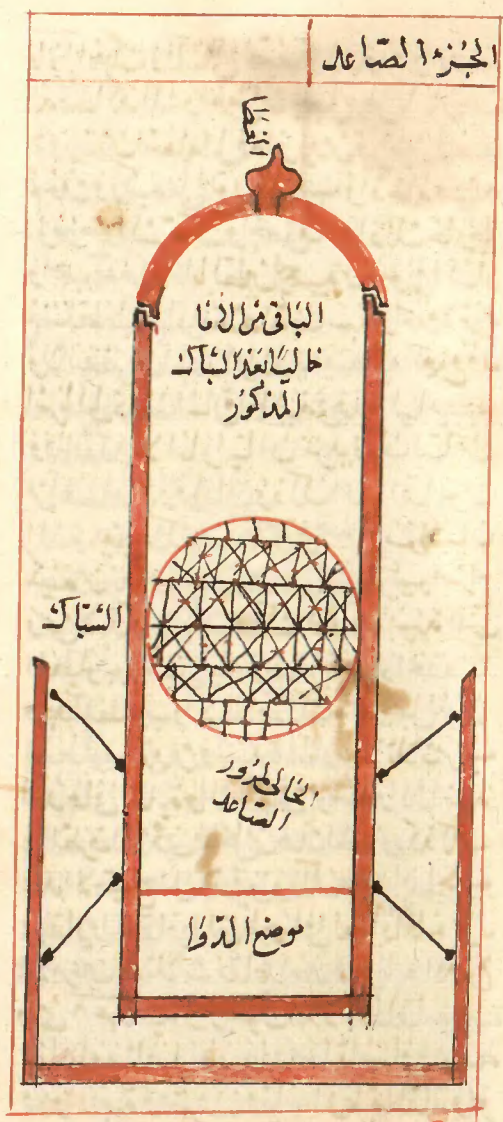 الجزء الصاعد
الباقي من الانا
خاليا بعد الشباك
المذكور
الشباك
الخالي لمرور
الصاعد
موضع الدوا